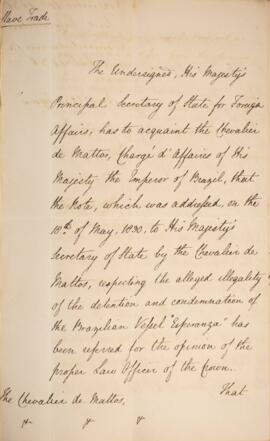 Slave Trade
The Undersigned, His Majesty's
Principal Secretary of State for Foreign
Affairs, has to acquaint the Chevalier
de Mattos, Chargé d'Affaires of His
Majesty the Emperor of Brazil, that
the Note, which was addressed, on the
18th of May, 1830, to His Majesty's
Secretary of State by the Chevalier de
Mattos, respecting the alleged illegality
of the detention and condemnation of
the Brazilian Vessel "Esperanza" has
been referred for the opinion of the
proper Law Officer of the Crown.
That
The Chevalier de Mattos,